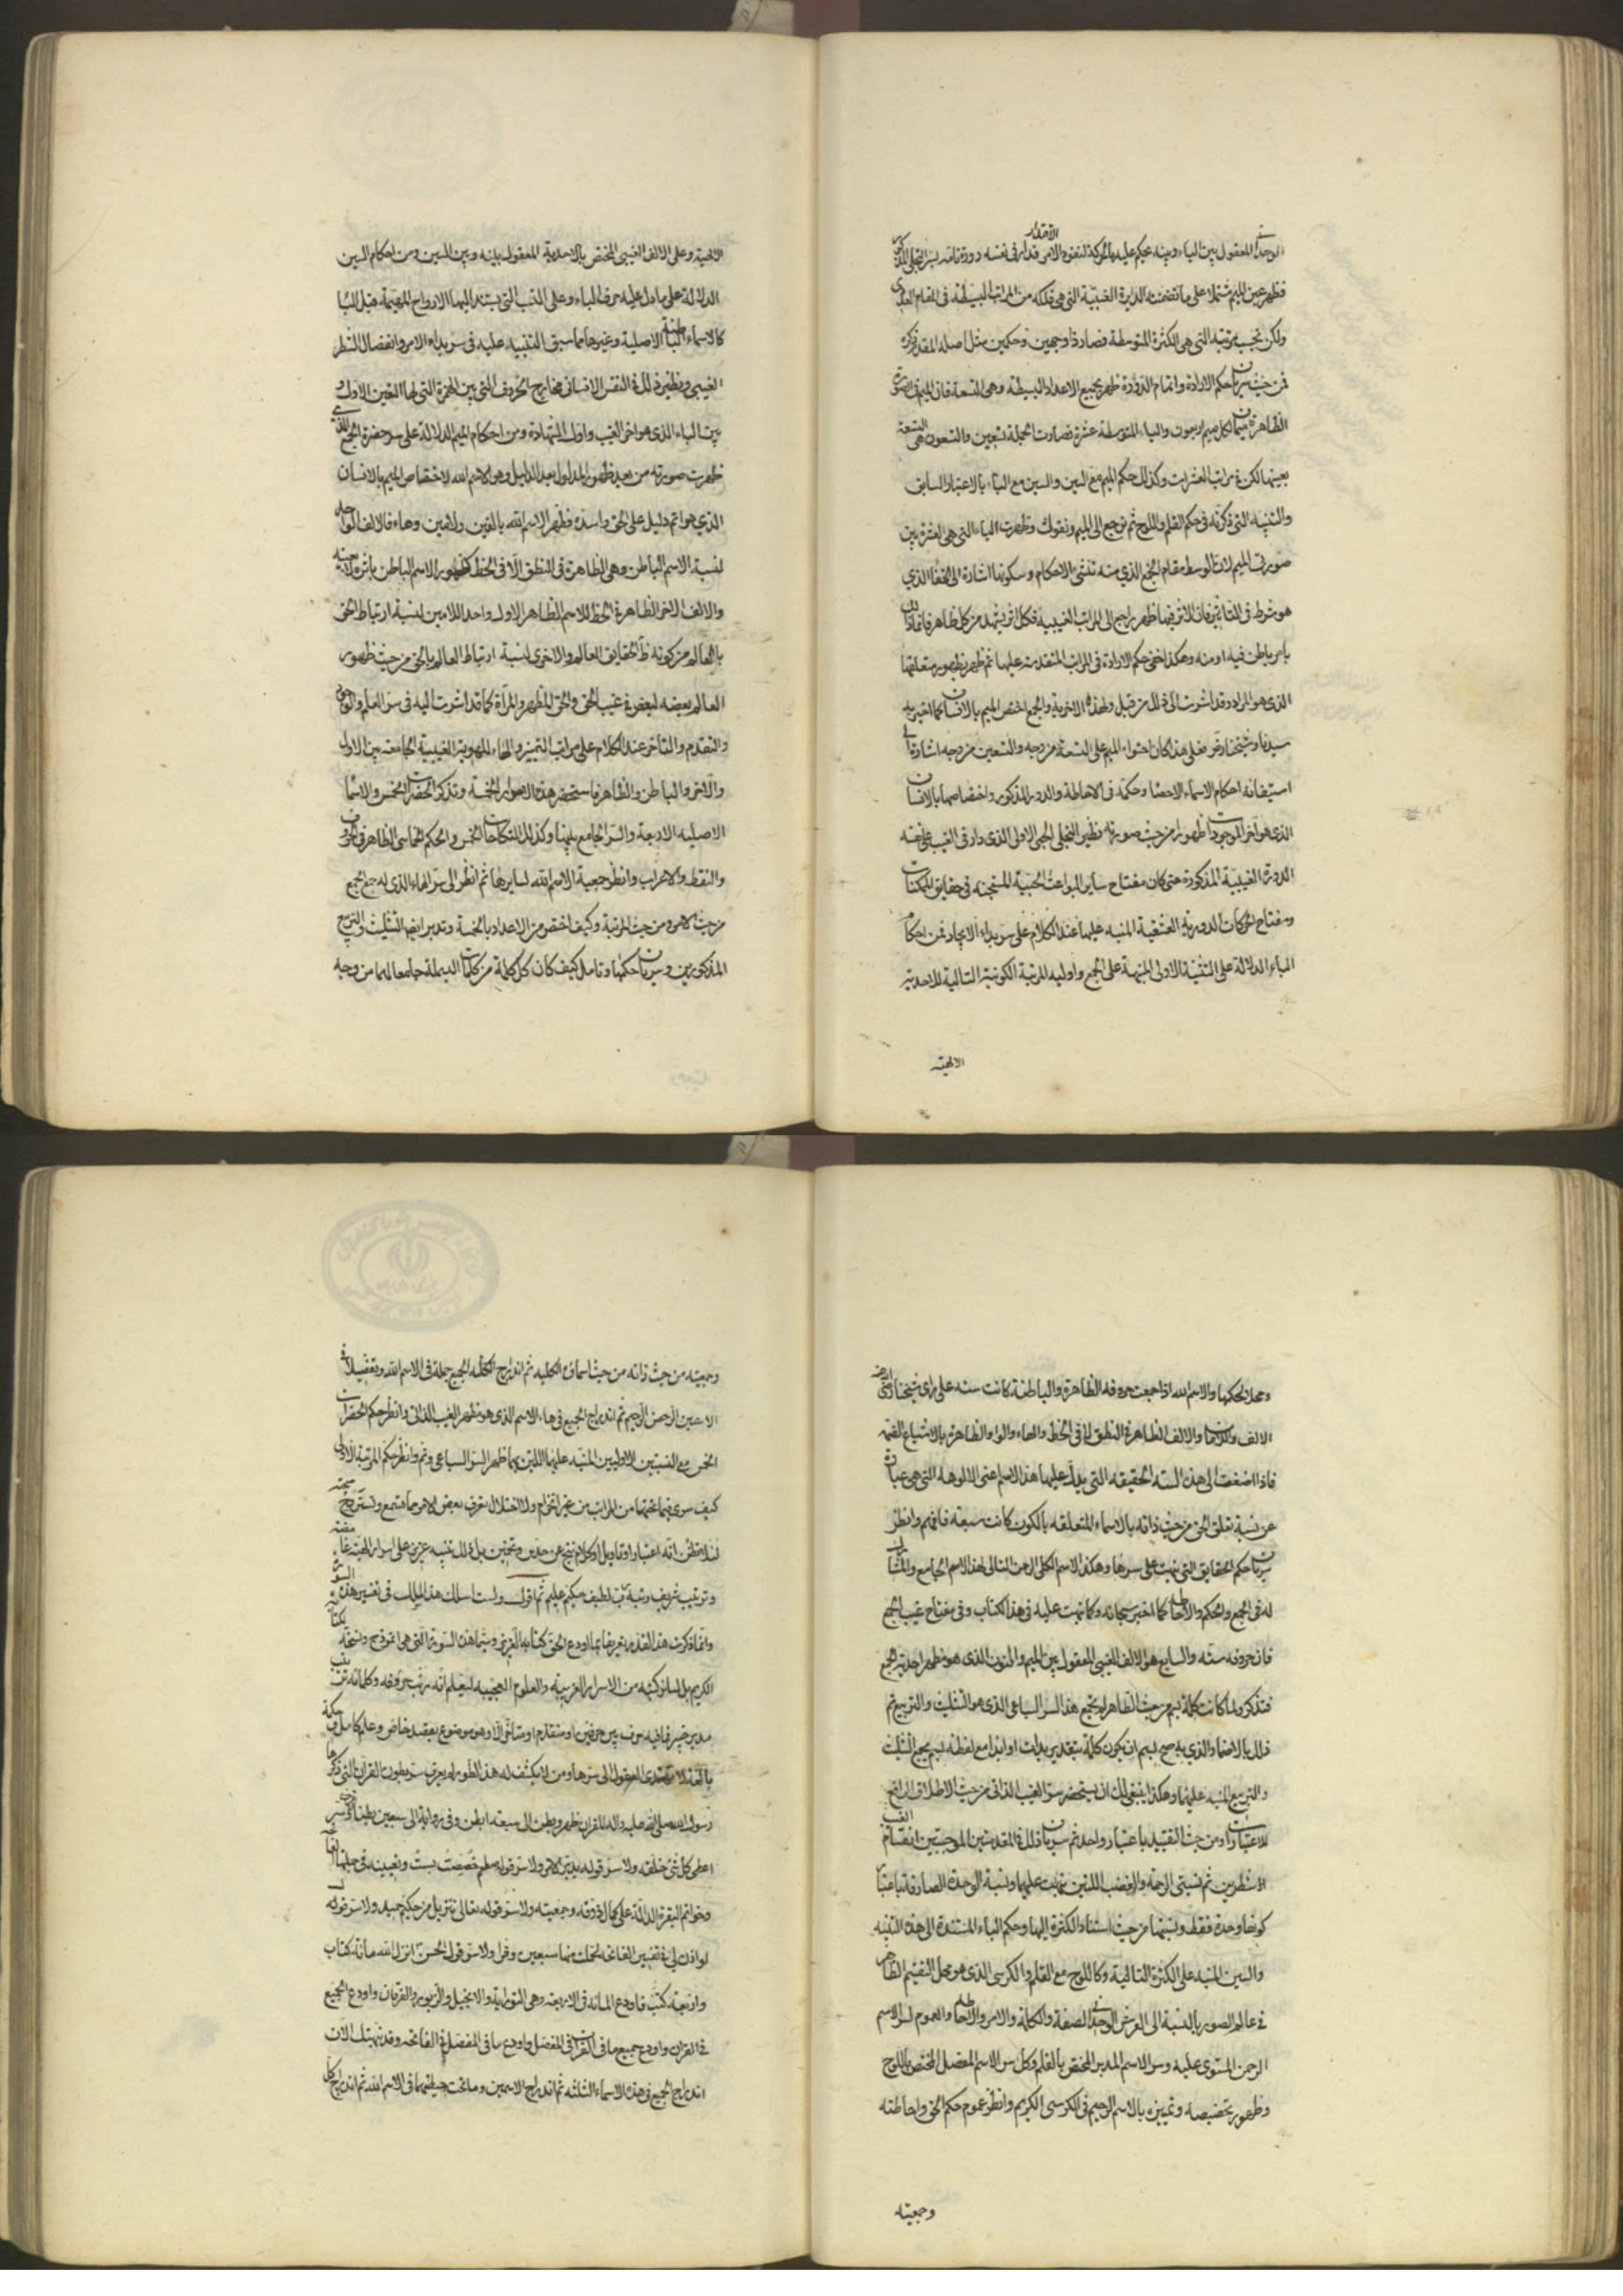 الوحدة المعقول بين الباء وبينه يحكم عليه بالحركة لنفوذ الاقتدار والامر قد دار في نفسه دورة تامة بسر التجلي المذكور
فظهر عين الميم مشتملا على ما تضمنته الدايرة الغيبيّة التي هي فلكه من المراتب البسيطة في المقام العددي
ولكن بحسب مرتبته التي هي الكثرة المتوسطة فصار ذا وجهين وحكمين مثل اصله المقدم ذكره
فمن حيث سريان حكم الارادة واتمام الدورة ظهر بجميع الاعداد البسيطة وهي التسعة فان الميم في الصورة
الظاهرة ميمان لكل ميم اربعون والياء المتوسطة عشرة فصارت الجملة تسعين والتسعون هي التسعة
بعينها لكن في مراتب العشرات وكذلك حكم الميم مع السين والسين مع الباء بالاعتبار السابق
والتنبيه التي ذكرته في حكم القلم واللوح ثم نرجع الى الميم ونقول وظهرت الياء التي هي العشرة بين
صورتي الميم لان الوسط مقام الجمع الذي منه تنشئ الاحكام وسكونها اشارة الى الخفاء الذي
هو شرط في التاثير فان الاثر فيما ظهر راجع الى المراتب الغيبية فكل اثر يشهد من كل ظاهر فانما ذلك
بامر باطن فيه او منه وهكذا خفي حكم الارادة في المراتب المتقدمة عليها ثم ظهر بظهور متعلقها
الذي هو المراد وقد اشرت الى ذلك من قبل ولهذه الاخرية والجمع اختص الميم بالانسان كما اخبر به
سيدنا وشيخنا رضى فعلى هذا كان احتواء الميم على التسعة من وجه والتسعين من وجه اشارة الى
استيفائه احكام الاسماء الاحصاء وحكمه في الاحاطة والدور المذكور واختصاصها بالانسان
الذي هو آخر الموجودات ظهورا من حيث صورته نظير التجلي الجمي الاولي الذي دار في الغيب على نفسه
الدورة الغيبية المذكورة حتى كان مفتاح ساير البواعث الحبية المستجنه في حقايق الممكنات
ومفتاح الحركات الدورية العشقية المنبه عليها عند الكلام على سر بداء الايجاد فمن احكام
الباء الدلالة على التثنية الاولى المنبهة على الجمع واوليه للمرتبة الكونية التالية للاحدية
الالهية
الالهية وعلى الالف الغيبي المختص بالاحدية المعقول بينه وبين السين ومن احكام السين
الدلالة على ما دل عليه حرف الباء وعلى النسب التي يستند اليها الارواح المهيمة قبل الباء
كالاسماء الباطنة الاصلية وغيرها مما سبق التنبيه عليه في سر بداء الامر وانفصال الشطر
الغيبي ونظير ذلك في النفس الانساني مخارج الحروف التي بين الهمزة التي لها التعين الاول و
بين الباء الذي هو اخر الغيب واول الشهادة ومن احكام الميم الدلالة على سر حضرة الجمع الذي
ظهرت صورته من بعيد ظهور المدلول بعد الدليل وهو الاسم الله لاختصاص الميم بالانسان
الذي هو اتم دليل على الحق واسده فظهر الاسم الله بالفين ولامين وهاء فالالف الواحد
لنسبة الاسم الباطن وهي الظاهرة في النطق لا في الخط كظهور الاسم الباطن باثره لا بعينه
والالف الاخر الظاهرة في الخط للاسم الظاهر الاول واحد اللامين لنسبة ارتباط الحق
بالعالم من كونه ظا لحقايق العالم والاخرى لنسبة ارتباط العالم بالحق من حيث ظهور
العالم بعضه لبعض في غيب الحق والحق المظهر والمرآة كما قد اشرت اليه في سر العلم والوجود
والتقدم والتاخر عند الكلام على مراتب التمييز والهاء للهوية الغيبية الجامعة بين الاول
والآخر والباطن والظاهر فاستحضر هذه الاصول الخمسة وتذكر الحضرات الخمس والاسماء
الاصلية الاربعة والسر الجامع بينها وكذلك النكاحات الخمس والحكم الخماسي الظاهر في الحروف
والنقط والاعراب وانظر جمعية الاسم الله لسايرها ثم انظر الى سر الهاء الذي له جمع الجمع
من حيث الامر ومن حيث المرتبة وكيف اختص من الاعداد بالخمسة وتدبر ايضا التثليث والتربيع
المذكورين وسريان حكمها وتامل كيف كان كل كلمة من كلمات البسملة جامعا لهما من وجه
ومحلا لحكمها والاسم الله اذا جمعت حروفه الظاهرة والباطنة كانت سته على راي شيخنا رضى
الالف واللامان والالف الظاهرة في النطق لا في الخط والهاء والواو الظاهرة بالاشباع الضمه
فاذا اضفت الى هذه الستة الحقيقه التي يدل عليها هذا الاسم اعني الالوهه التي هي عبارة
عن نسبة تعلق الحق من حيث ذاته بالاسماء المتعلقه بالكون كانت سبعة فافهم وانظر
سريان حكم الحقايق التي نبهت على سرها وهكذا الاسم الكلي الرحمن التالي لهذا الاسم الجامع والمشارك
له في الجمع والحكم والاحاطة كما اخبر سبحانه وكما نبهت عليه في هذا الكتاب وفي مفتاح غيب الجمع
فان حروفه ستّه والسابع هو الالف الغيبي المعقول بين الميم والنون الذي هو مظهر احدية الجمع
فتذكر ولما كانت كلمة بسم من حيث الظاهر لم يجمع هذا السر السباعي الذي هو التثليث والتربيع تم
ذلك بالاضمار الذي به صح لبسم ان يكون كلمة بتقدير بدات او ابدا مع لفظة بسم يجمع التثليث
والتربيع المنبه عليهما وهكذا ينبغي لك ان تستحضر سر الغيب الذاتي من حيث الاطلاق الرافع
للاعتبارات ومن حيث التقييد باعتبار واحد ثم سريان ذلك في المقدمتين الموجبتين انقسام الغيب
الشطرين ثم نسبتي الرحمة والغضب اللتين نبهت عليهما ونسبة الوحدة الصادقة باعتبار
كونها وحدة فقط ونسبتها من حيث استناد الكثرة اليها وحكم الباء المستندة الى هذه التثنيه
والسين المنبه على الكثرة التالية وكاللوح مع القلم والكرسي الذي هو محل التقسيم الظاهر
في عالم الصور بالنسبة الى العرش الوحداني الصفة والكلمة والامر والاحاطة والعموم لسر الاسم
الرحمن المستوي عليه وسر الاسم المدبر المختص بالقلم وكل سر الاسم المفصل المختص باللوح
وظهور تخصيصه وتمييزه بالاسم الرحيم في الكرسي الكريم وانظر عموم حكم الحق واحاطته
وجمعيته
وجمعيته من حيث ذاته من حيث اسمائه الكلية ثم اندراج الكل له الجمع جملة في الاسم الله وتفصيلا في
الاسمين الرحمن الرحيم ثم اندراج الجميع في هاء الاسم الذي هو مظهر الغيب الذاتي وانظر حكم الحضرات
الخمس مع النسبتين الاوليين المنبه عليهما اللتين بهما ظهر السر السباعي وتم وانظر حكم المرتبة الاولى
كيف سرى فيما تحتها من المراتب من غير انخرام ولا اختلال تعرف بعض الامر مما تسمع وتستروح صحته
لئلا تظن انه اعتبار او تاويل او كلام نتج عن حدس وتخمين بل ذلك تنبيه عزيز على اسرار الهية غامضة
وترتيب شريف رتبه رب لطيف حكيم عليم ثم اقول ولست اسلك هذا المسالك في تفسير هذه السورة
وانما ذكرت هذا القدر تعريفا بما اودع الحق كتابه العزيز وسيما هذه السورة التي هي انموذج ونسخه لكتابه
الكريم بل لسائر كتبه من الاسرار الغريبة والعلوم العجيبه ليعلم انه رتب حروفه وكلماته ترتيب
مدبر خبير فما فيه حرف بين حرفين او متقدم او متاخر الا وهو موضوع بقصد خاص وعلم كامل وحكمة
بالغة لا تهتدي العقول الى سرها ومن لا يكشف له هذا الطور لم يعرف سر بطون القران التي ذكرها
رسول الله صلى الله عليه واله للقران ظهر وبطن الى سبعة ابطن وفي رواية الى سبعين بطنا ولا سر قوله
اعطى كل شئ خلقه ولا سر قوله يدبر الامر ولا سر قوله صلعم خصصت بست وتعيينه في جملتها الفاتحه
وخواتم البقرة الدالة على كمال ذوقه وجمعيته ولا سر قوله تعالى تنزيل من حكيم حميد ولا سر قوله
لو اذن لي في تفسير الفاتحه لحملت منها سبعين وقرا ولا سر قول الحسن انزل الله مائة كتاب
واربعة كتب فاودع المائة في الاربعة وهي التوراية والانجيل والزبور والفرقان واودع الجميع
في القران واودع جميع ما في القران في المفصل واودع ما في المفصل في الفاتحه وقد نبهتك الان
اندراج الجميع في هذه الاسماء الثلثة ثم اندراج الاسمين وما تحت حيطتهما في الاسم الله ثم اندراج كل